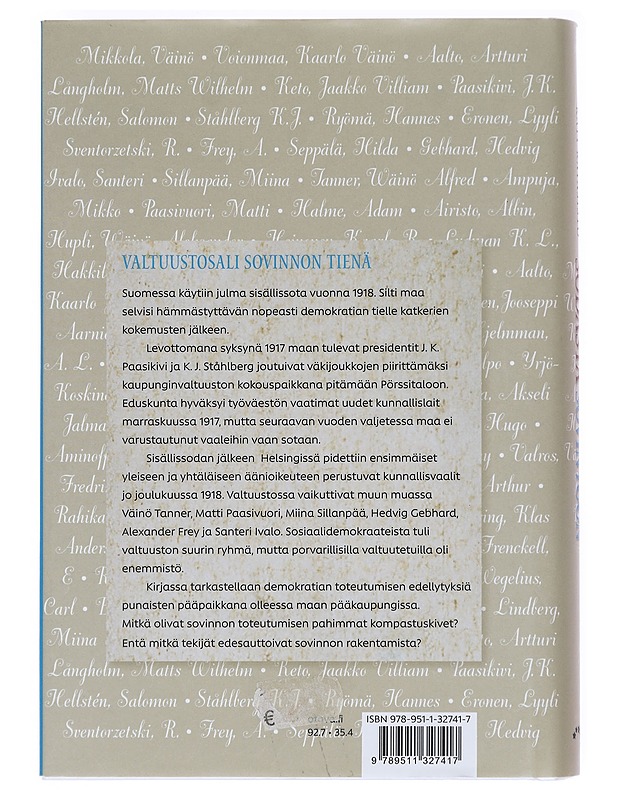 Mikkola, Väinö • Voionmaa, Kaarlo Väinö • Aalto, Artturi
Långholm, Matts Wilhelm • Keto, Jaakko Villiam • Paasikivi, J.K.
Hellstén, Salomon • Ståhlberg K.J. • Ryömä, Hannes • Eronen, Lyyli
Sventorzetski, R. • Frey, A. • Seppälä, Hilda • Gebhard, Hedvig
Ivalo, Santeri • Sillanpää, Miina • Tanner, Wäinö Alfred • Ampuja,
Mikko • Paasivuori, Matti • Halme, Adam • Airisto, Albin,
Hupli, Wäinö
K. L.,
Hakkil
• Aalto,
VALTUUSTOSALI SOVINNON TIENÄ
Suomessa käytiin julma sisällissota vuonna 1918. Silti maa
selvisi hämmästyttävän nopeasti demokratian tielle katkerien
kokemusten jälkeen.
Levottomana syksynä 1917 maan tulevat presidentit J. K.
Paasikivi ja K. J. Ståhlberg joutuivat väkijoukkojen piirittämäksi
kaupunginvaltuuston kokouspaikkana pitämään Pörssitaloon.
Eduskunta hyväksyi työväestön vaatimat uudet kunnallislait
marraskuussa 1917, mutta seuraavan vuoden valjetessa maa ei
varustautunut vaaleihin vaan sotaan.
Sisällissodan jälkeen Helsingissä pidettiin ensimmäiset
yleiseen ja yhtäläiseen äänioikeuteen perustuvat kunnallisvaalit
jo joulukuussa 1918. Valtuustossa vaikuttivat muun muassa
Väinö Tanner, Matti Paasivuori, Miina Sillanpää, Hedvig Gebhard,
Alexander Frey ja Santeri Ivalo. Sosiaalidemokraateista tuli
valtuuston suurin ryhmä, mutta porvarillisilla valtuutetuilla oli
enemmistö.
Kirjassa tarkastellaan demokratian toteutumisen edellytyksiä
punaisten pääpaikkana olleessa maan pääkaupungissa.
Mitkä olivat sovinnon toteutumisen pahimmat kompastuskivet?
Entä mitkä tekijät edesauttoivat sovinnon rakentamista?
Kaarlo
en, Jooseppi
Aarni
jelmman,
A. L. •
lpo • Yrjö-
Koskin
, Akseli
Jalma
Hugo •
Aminoff
• Valros,
Fredri
Arthur •
Rahika
ing, Klas
Ander
Frenckell,
E • R
Wegelius,
Carl •
• Lindberg,
Miina
to, Artturi
Långholm, Matts Wilhelm • Keto, Jaakko Villiam • Paasikivi, J.K.
Hellstén, Salomon • Ståhlberg K.J. • Ryömä, Hannes • Eronen, Lyyli
Sventorzetski, R. • Frey, A. • Seppälä
Hedwig
€
otava.fi
92.7 • 35.4
ISBN 978-951-1-32741-7
9 789511 327417